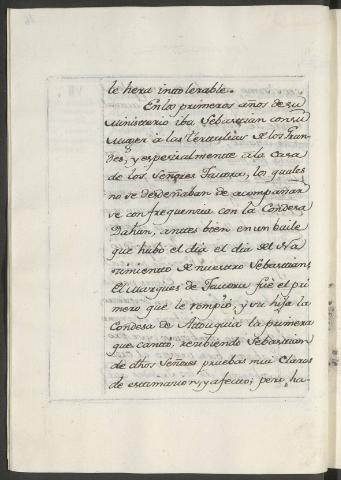 le hera intolerable.
En los primeros años de su
Ministerio iba Sebastian con su
Muger a las tertulias de los Gran-
des, y espesialmente a la casa
de los Señores Tavora, los quales
no se desdeñaban de acompañar
se con frequencia con la Condesa
Dahun, antes bien en un baile
que hubo el dia el dia del Na
simiento de nuestro Sebastian,
El Marques de Tavora fue el pri
mero que le rompió, y su hija la
Condesa de Atouguia la primera
que canto, resibiendo Sebastian
de dhos Señores pruebas mui Claras
de estimasion, y afecto; pero ha-